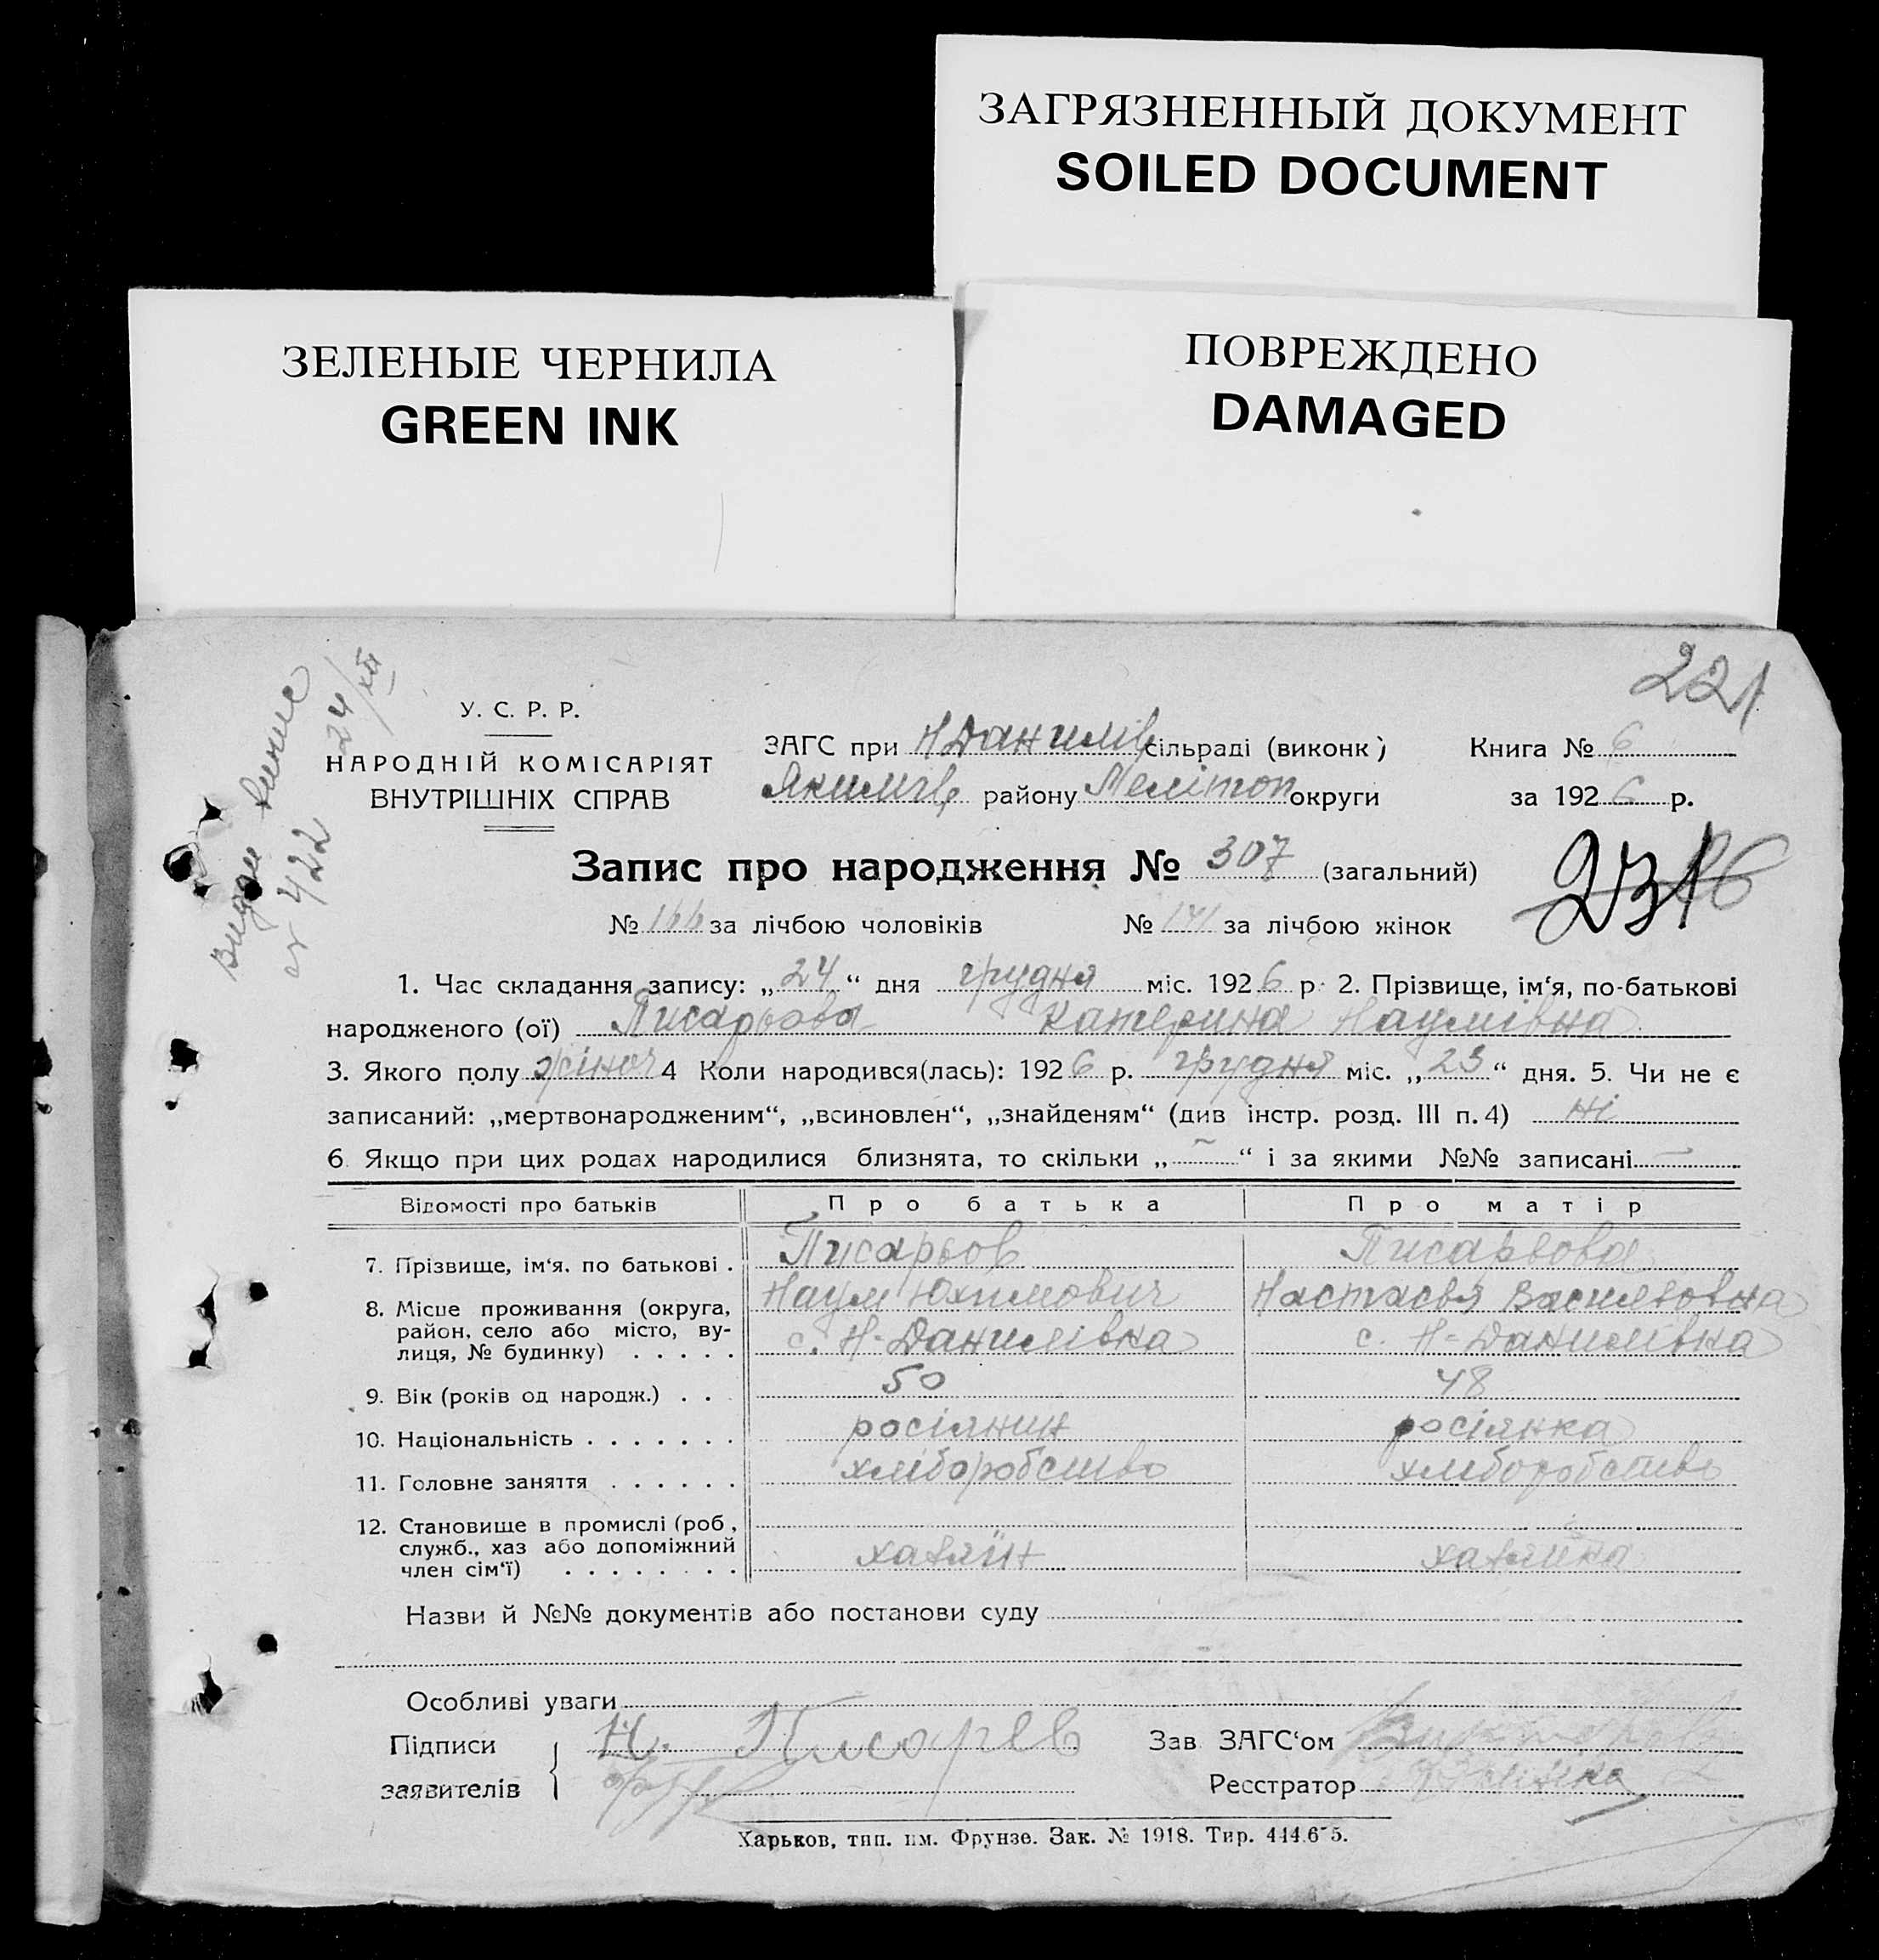 ЗАГРЯЗНЕННЫЙ ДОКУМЕНТ
SOILED DOCUMENT
ЗЕЛЕНЫЕ ЧЕРНИЛА
GREEN INK
ПОВРЕЖДЕНО
DAMAGED
221
Видан випис
№ 422 24/XII
У. С. Р. Р.
НАРОДНІЙ КОМІСАРІЯТ
ВНУТРІШНІХ СПРАВ
ЗАГС при Н Данилів сільраді (виконк) Книга № 6
Якимів району Мелітоп округи за 1926 р.
Запис про народження № 307 (загальний)
231
№ 166 за лічбою чоловіків № 141 за лічбою жінок
1. Час складання запису: „24“ дня грудня міс. 1926 р. 2. Прізвище, ім‘я, по-батькові
народженого (ої) Писарьова Катерина Наумівна
3. Якого полу жіноч 4 Коли народився(лась): 1926 р. грудня міс. „23“ дня. 5. Чи не є
записаний: „мертвонародженим“, „всиновлен“, „знайденям“ (див інстр. розд. III п. 4) ні
6. Якщо при цих родах народилися близнята, то скільки „–“ і за якими №№ записані –
Відомості про батьків Про батька Про матір
7. Прізвище, ім‘я, по батькові . Писарьов Писарьова
Наум Юхимович Настасья Васильовна
8. Місце проживання (округа,
район, село або місто, ву-
лиця, № будинку) . . . . . с. Н-Данилівка с. Н-Данилівка
9. Вік (років од народж.) . . 50 48
10. Національність . . . . . . . росіянин росіянка
11. Головне заняття . . . . . . хліборобство хліборобство
12. Становище в промислі (роб.,
служб., хаз або допоміжний
член сім‘ї) . . . . . . . . хазяїн хазяйка
Назви й №№ документів або постанови суду
Особливі уваги
Підписи Н. Писарев Зав ЗАГС‘ом
заявителів Реєстратор
Харьков, тип. им. Фрунзе. Зак. № 1918. Тир. 444.675.